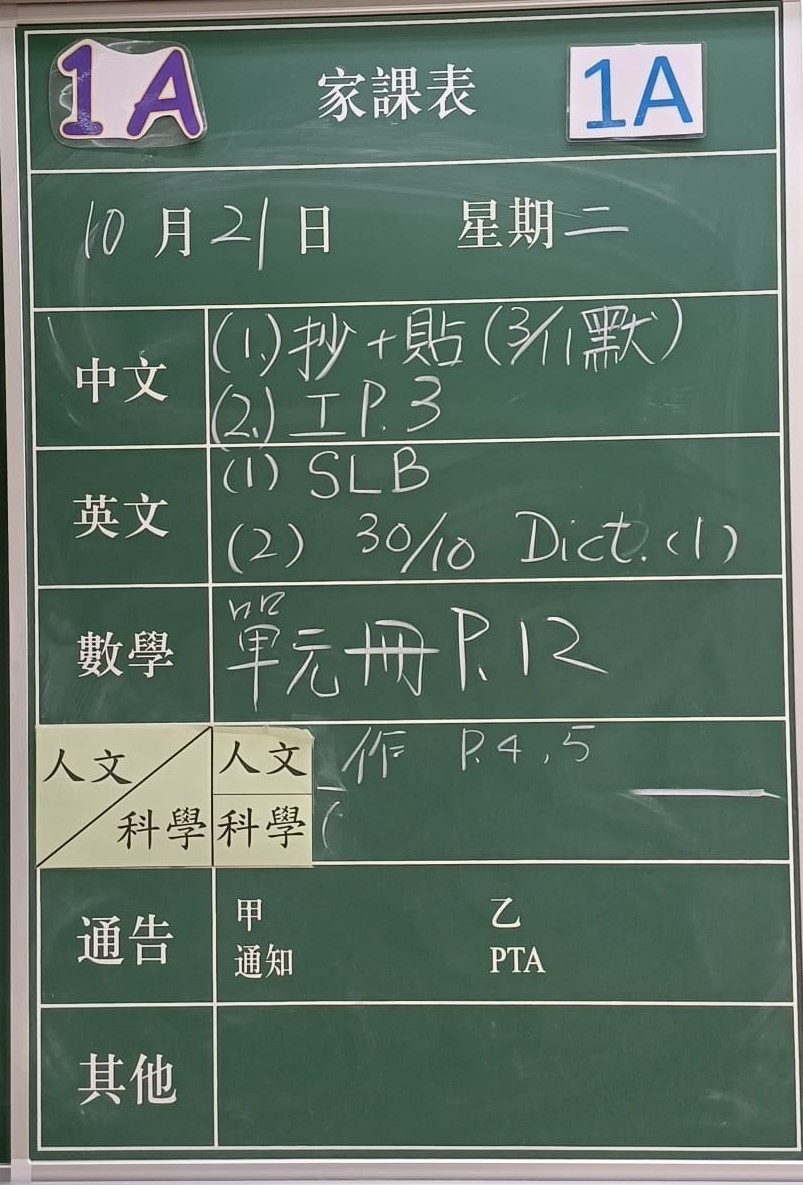 1A 家課表 1A
10月21日 星期二
中文 (1.) 抄+貼 (3/11默)
(2.) 工 P.3
英文 (1) SLB
(2) 30/10 Dict. (1)
數學 單元冊 P.12
人文 人文 作 P.4, 5
科學 科學
通告 甲 乙
通知 PTA
其他